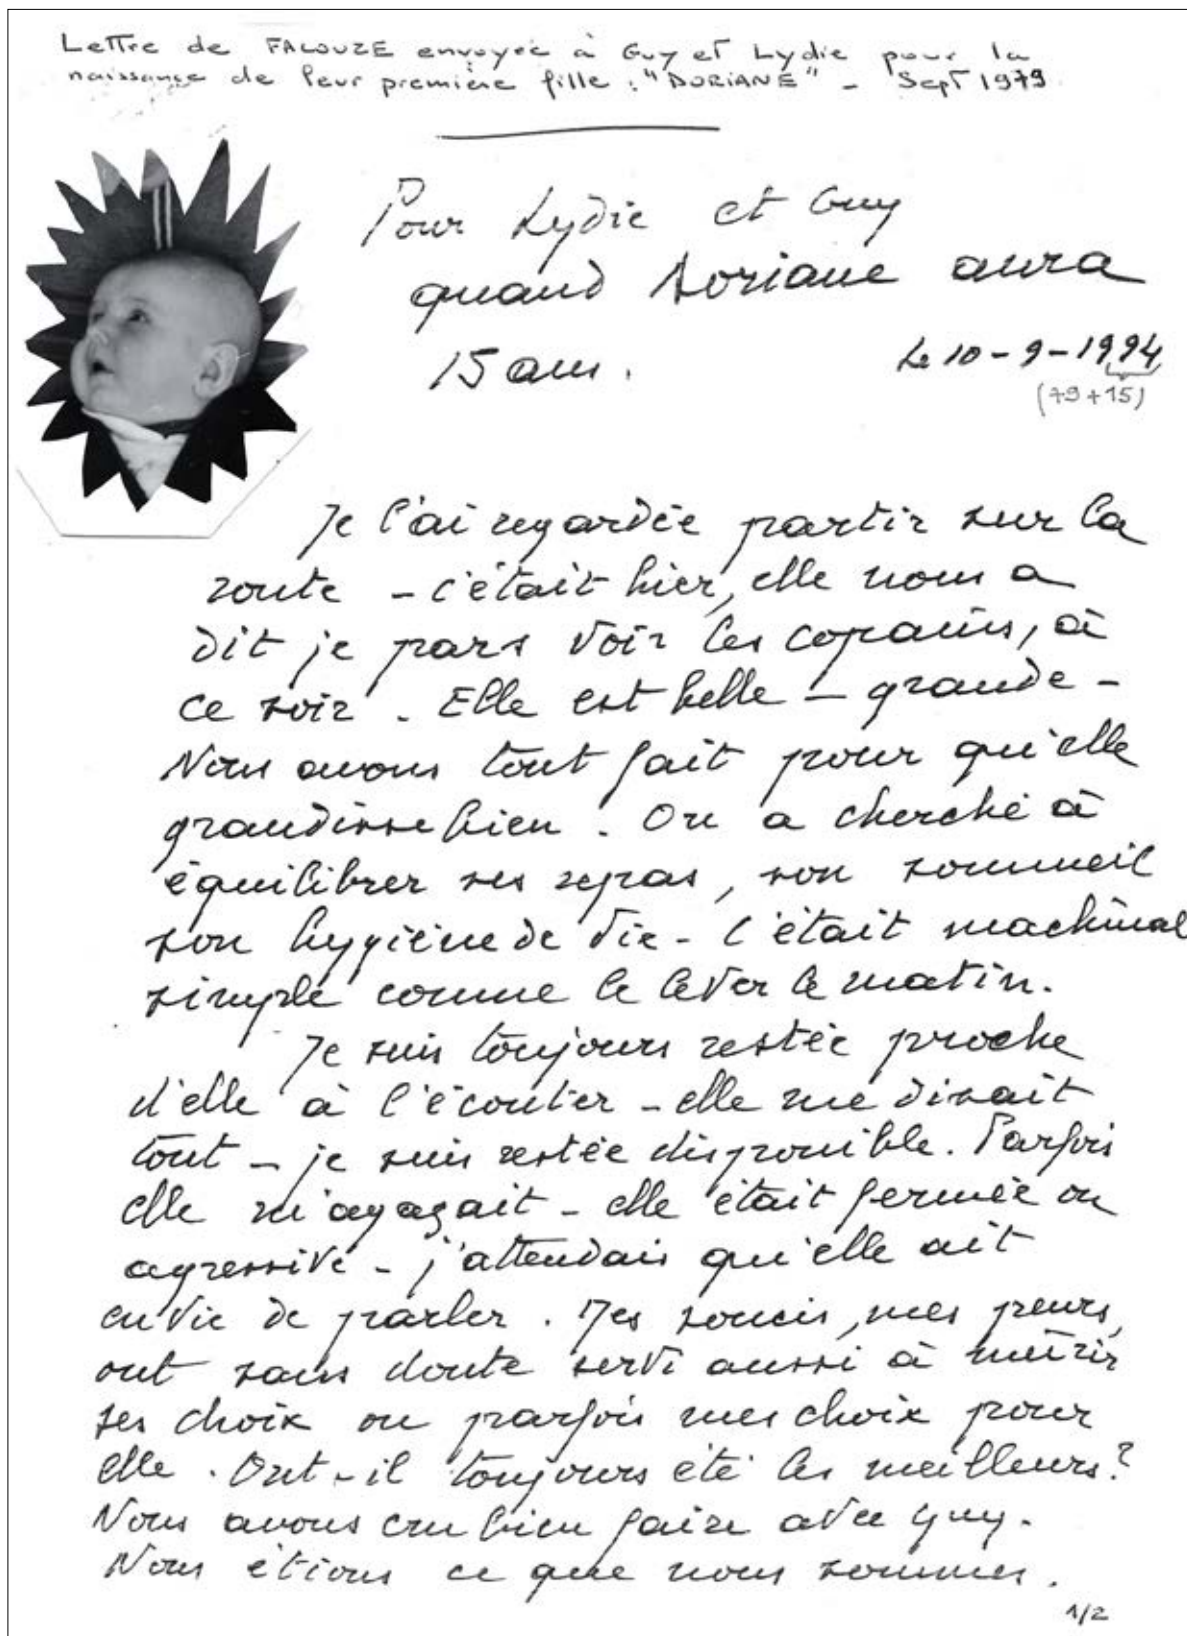 Lettre de FALOUZE envoyée à Guy et Lydie pour la
naissance de leur première fille : "DORIANE" - Sept 1979
Pour Lydie et Guy
quand Doriane aura
15 ans.
Le 10-9-1994
(79+15)
Je l'ai regardée partir sur la
route - c'était hier, elle nous a
dit je pars voir les copains, à
ce soir. Elle est belle - grande -
Nous avons tout fait pour qu'elle
grandisse bien. On a cherché à
équilibrer ses repas, son sommeil
son hygiène de vie - c'était machinal
simple comme le lever le matin.
Je suis toujours restée proche
d'elle à l'écouter - elle me disait
tout - je suis restée disponible. Parfois
elle m'agaçait - elle était fermée ou
agressive - j'attendais qu'elle ait
envie de parler. Mes soucis, mes peurs,
ont sans doute servi aussi à mûrir
ses choix ou parfois mes choix pour
elle. Ont-il toujours été les meilleurs ?
Nous avons cru bien faire avec Guy.
Nous étions ce que nous sommes.
1/2